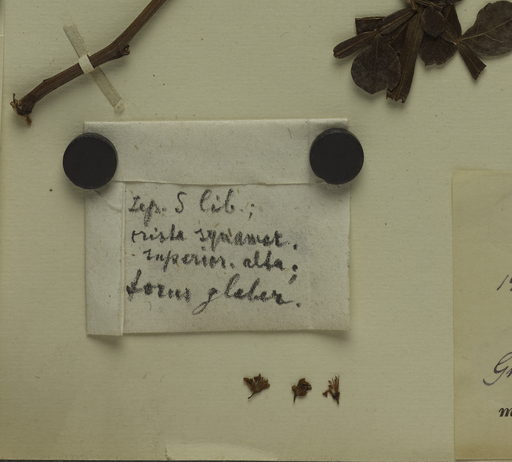 Sep. 5 lib.;
crista squamar.
superior. alta;
torus glaber.